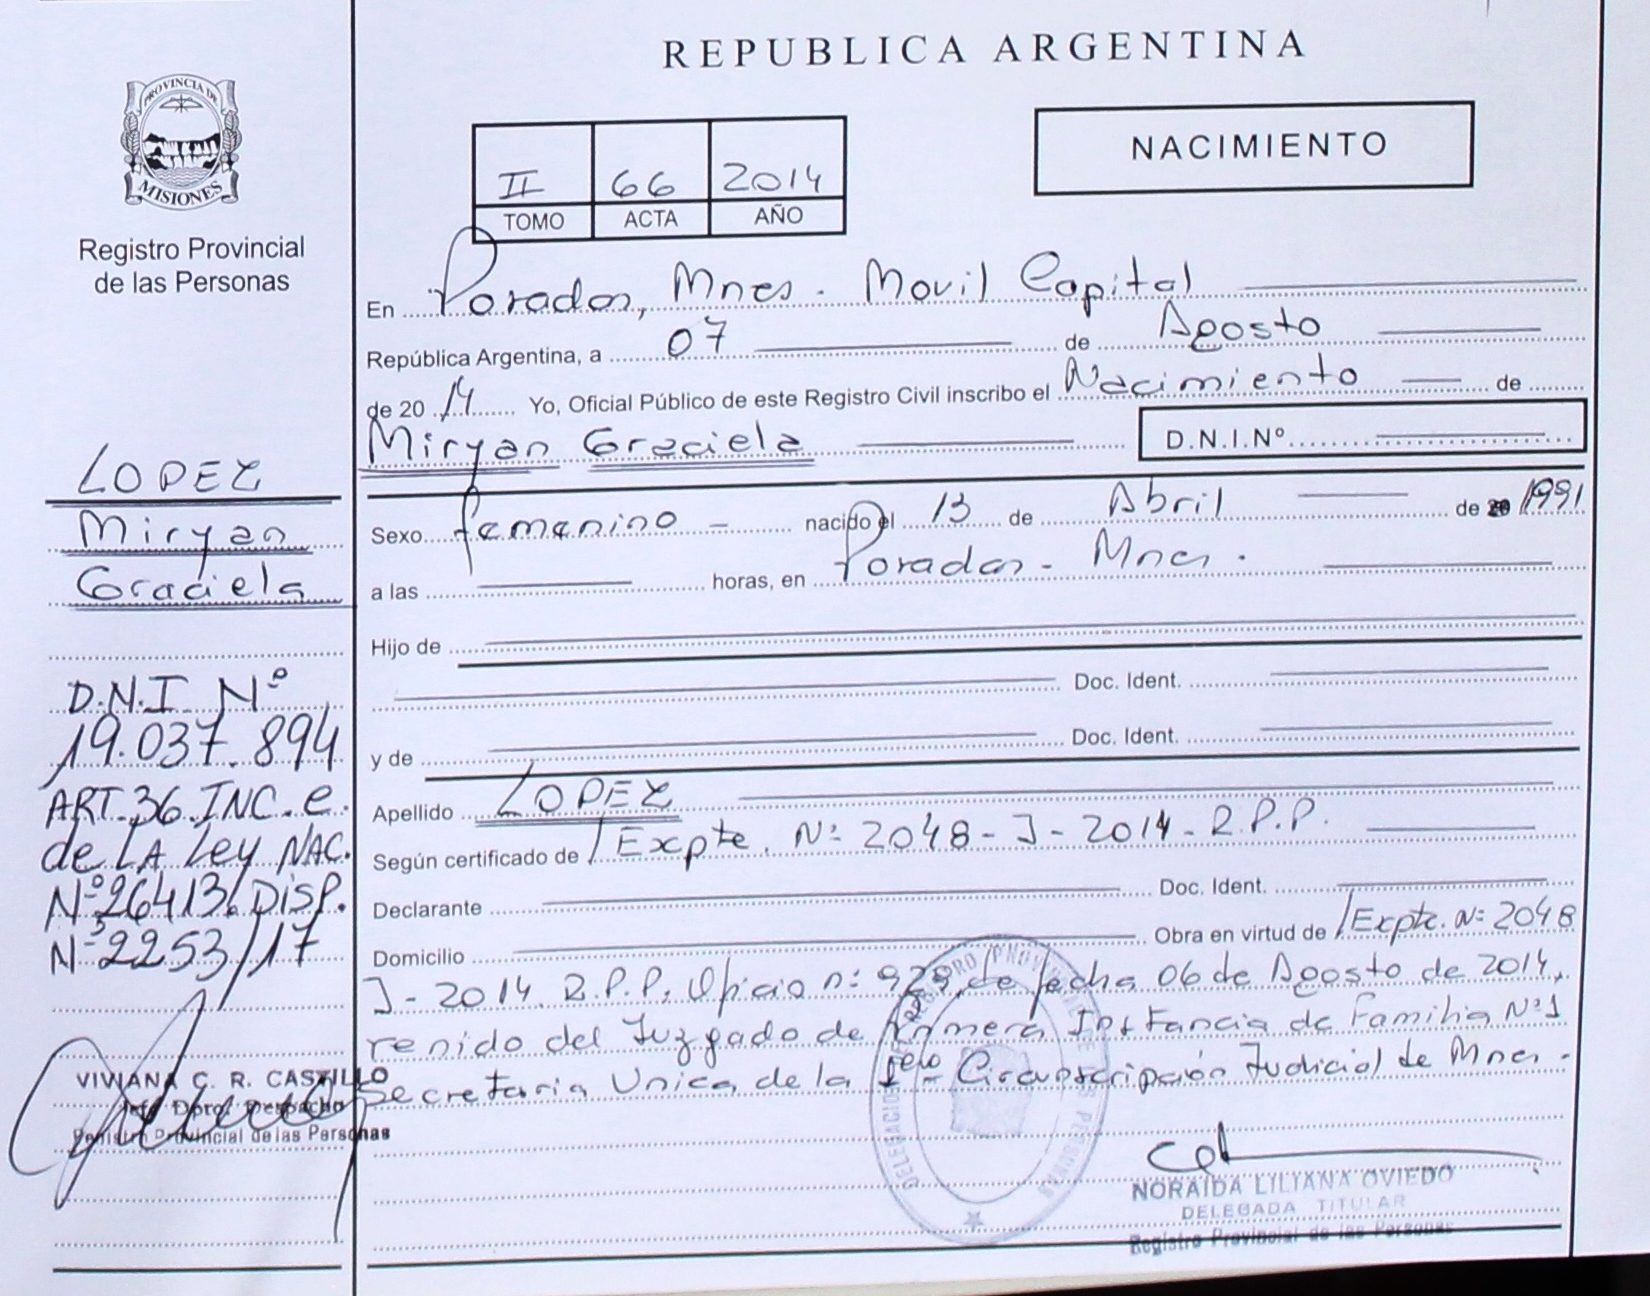 REPUBLICA ARGENTINA
PROVINCIA DE
MISIONES
Registro Provincial
de las Personas
NACIMIENTO
II 66 2014
TOMO ACTA AÑO
En Posadas, Mnes. Movil Capital
República Argentina, a 07 de Agosto
de 2014 Yo, Oficial Público de este Registro Civil inscribo el Nacimiento de
Miryan Graciela D.N.I.Nº
Sexo femenino - nacido el 13 de Abril de 20 1991
a las horas, en Posadas - Mnes.
Hijo de
Doc. Ident.
y de Doc. Ident.
Apellido LOPEZ
Según certificado de /Expte. Nº 2048-J-2014-R.P.P.
Declarante Doc. Ident.
Domicilio Obra en virtud de /Expte. Nº 2048
J-2014 R.P.P. Oficio nº 929, de fecha 06 de Agosto de 2014,
venido del Juzgado de Primera Instancia de Familia Nº1
Secretaria Unica de la 1era Circunscripción Judicial de Mnes.
LOPEZ
Miryan
Graciela
D.N.I Nº
19.037.894
ART.36.INC.e.
de LA Ley NAC.
Nº26413. DISP.
Nº2253/17
VIVIANA C. R. CASTILLO
Jefe Dpto. Despacho
Registro Provincial de las Personas
NORAIDA LILIANA OVIEDO
DELEGADA TITULAR
Registro Provincial de las Personas